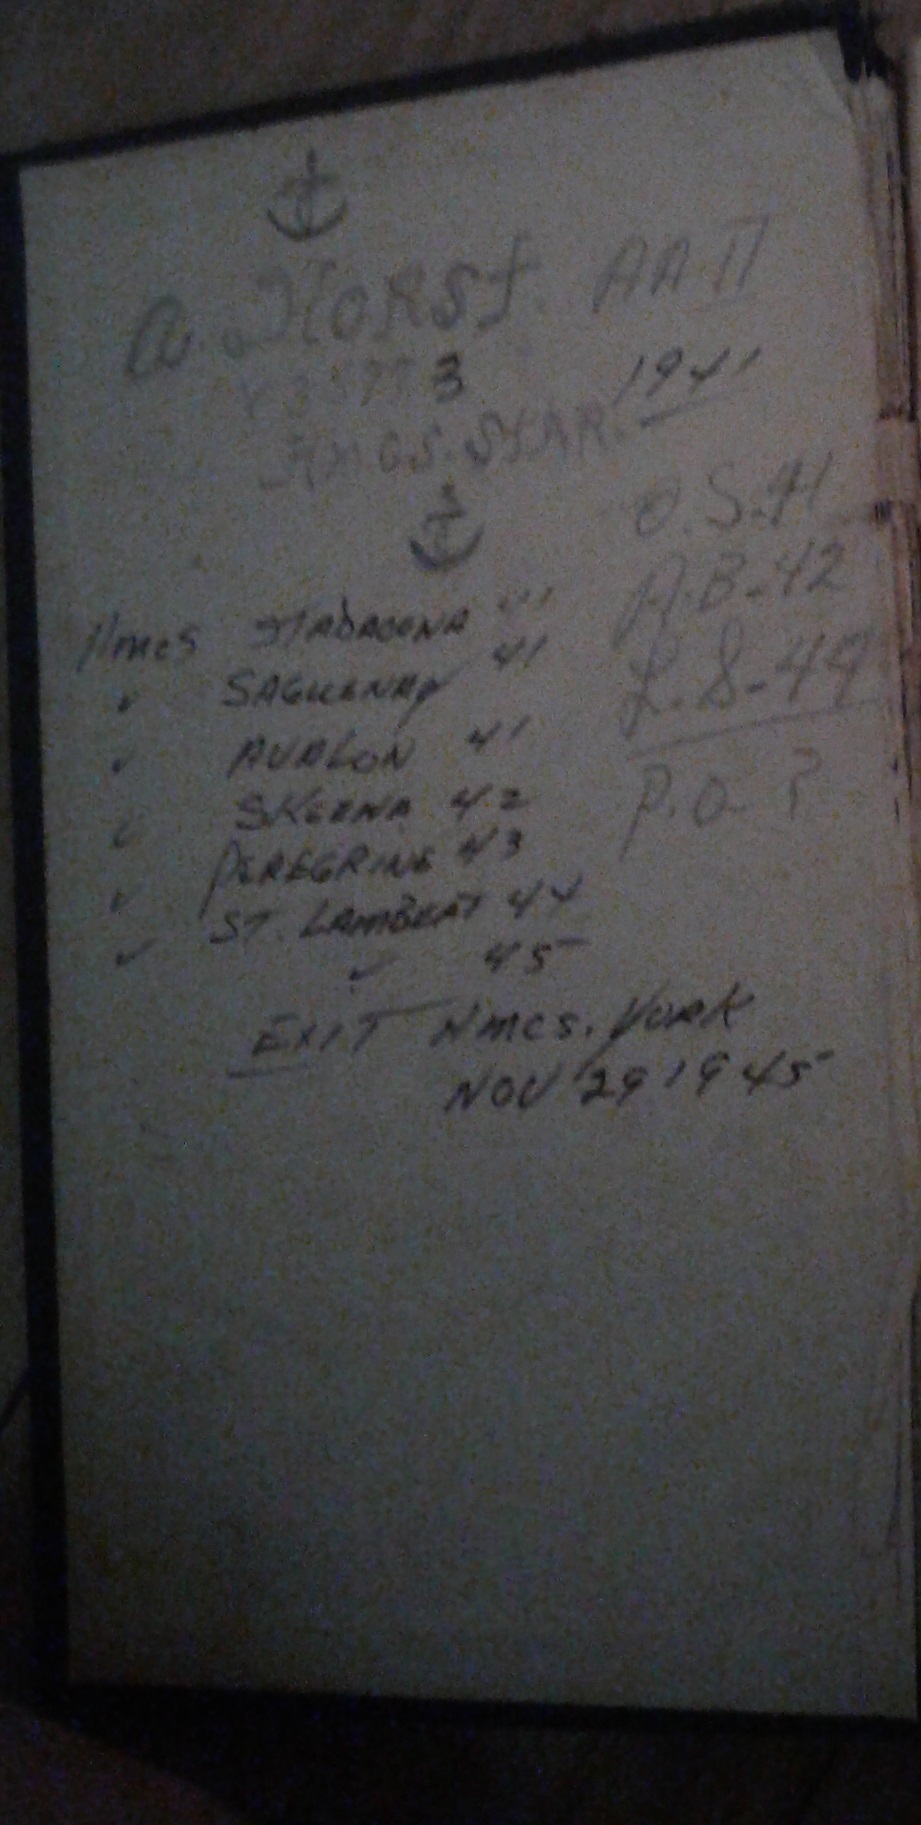 A. Horst. AA II
3
HMCS. STAR. 1941
O.S. 41
A.B - 42
L.S - 44
P.O - ?
HMCS STADACONA 41
" SAGUENAY 41
" AVALON 41
" SKEENA 42
" PEREGRINE 43
" ST. LAMBERT 44
" 45
EXIT HMCS. YORK
NOV 29 1945